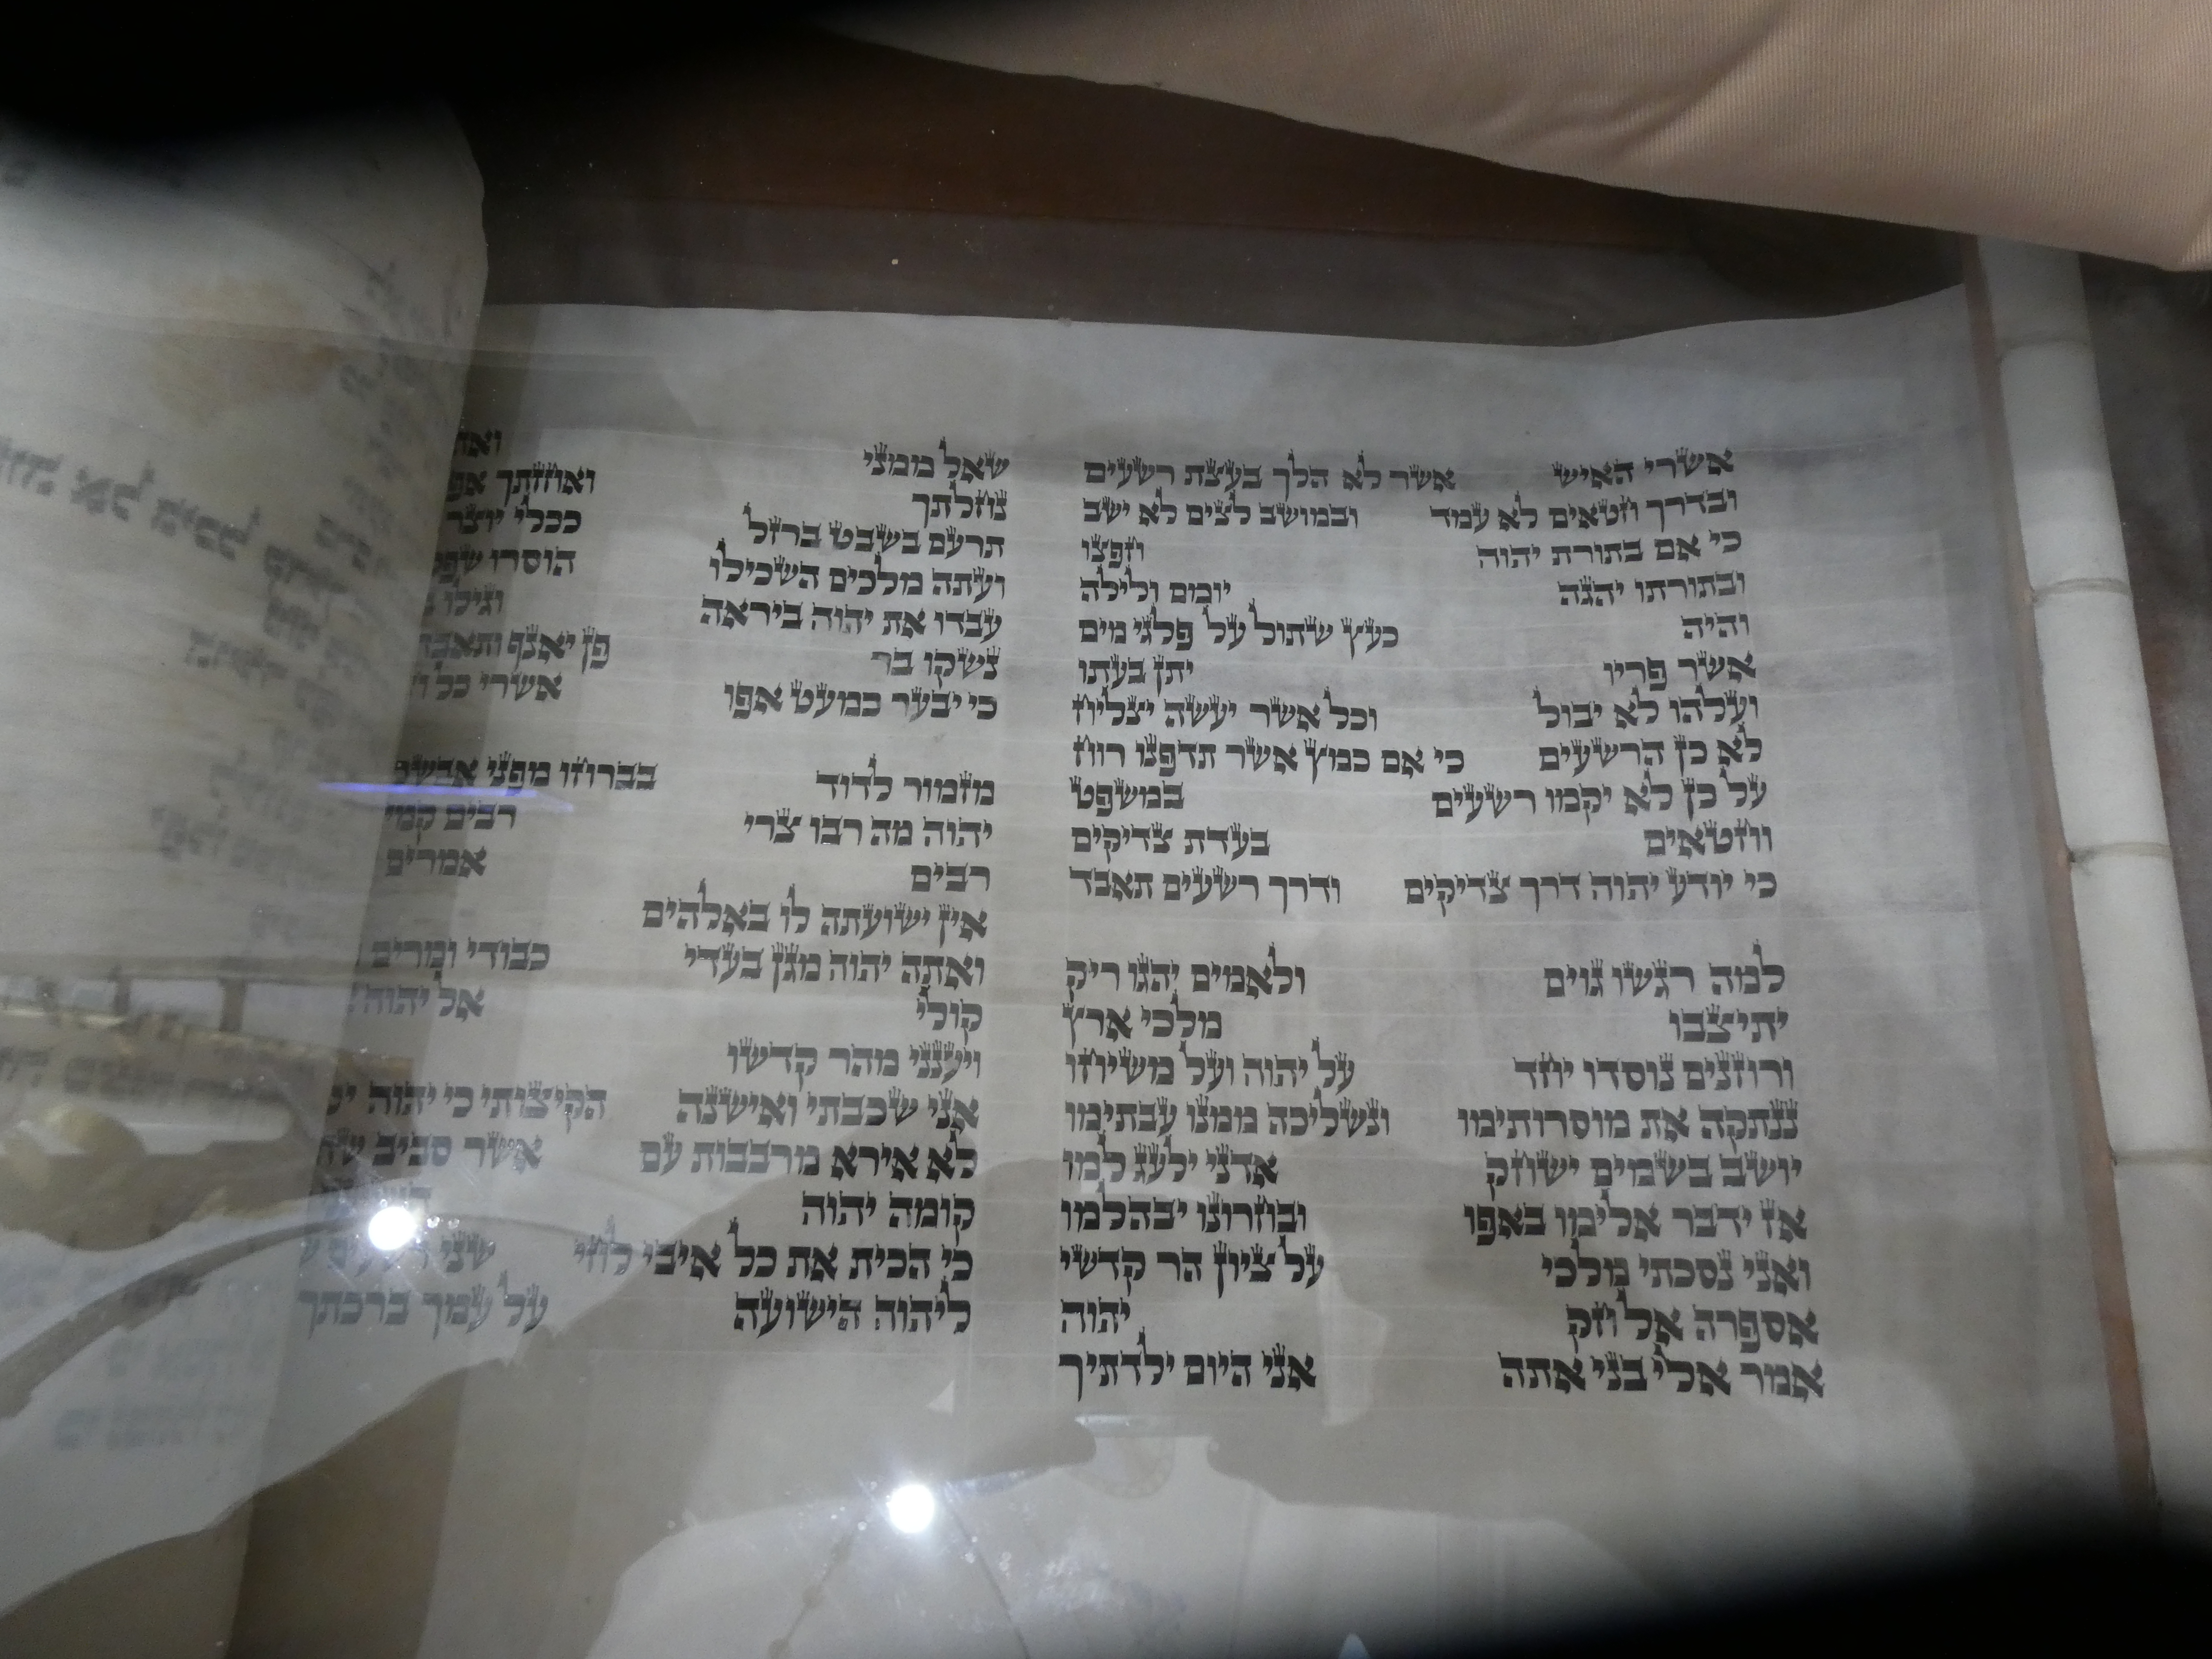 אשרי האיש אשר לא הלך בעצת רשעים
ובדרך חטאים לא עמד ובמושב לצים לא ישב
כי אם בתורת יהוה חפצו
ובתורתו יהגה יומם ולילה
והיה כעץ שתול על פלגי מים
אשר פריו יתן בעתו
ועלהו לא יבול וכל אשר יעשה יצליח
לא כן הרשעים כי אם כמץ אשר תדפנו רוח
על כן לא יקמו רשעים במשפט
וחטאים בעדת צדיקים
כי יודע יהוה דרך צדיקים ודרך רשעים תאבד
למה רגשו גוים ולאמים יהגו ריק
יתיצבו מלכי ארץ
ורוזנים נוסדו יחד על יהוה ועל משיחו
ננתקה את מוסרותימו ונשליכה ממנו עבתימו
יושב בשמים ישחק אדני ילעג למו
אז ידבר אלימו באפו ובחרונו יבהלמו
ואני נסכתי מלכי על ציון הר קדשי
אספרה אל חק יהוה
אמר אלי בני אתה אני היום ילדתיך
שאל ממני
נחלתך ואחזתך
תרעם בשבט ברזל ככלי יוצר
ועתה מלכים השכילו הוסרו
עבדו את יהוה ביראה וגילו
נשקו בר פן יאנף ותאבדו
כי יבער כמעט אפו אשרי כל
מזמור לדוד בברחו מפני אבשלום
יהוה מה רבו צרי רבים קמי
רבים אמרים
אין ישועתה לו באלהים
ואתה יהוה מגן בעדי כבודי ומרים
קולי אל יהוה
ויענני מהר קדשו
אני שכבתי ואישנה הקיצותי כי יהוה
לא אירא מרבבות עם אשר סביב
קומה יהוה
כי הכית את כל איבי לחי שני
ליהוה הישועה על עמך ברכתך